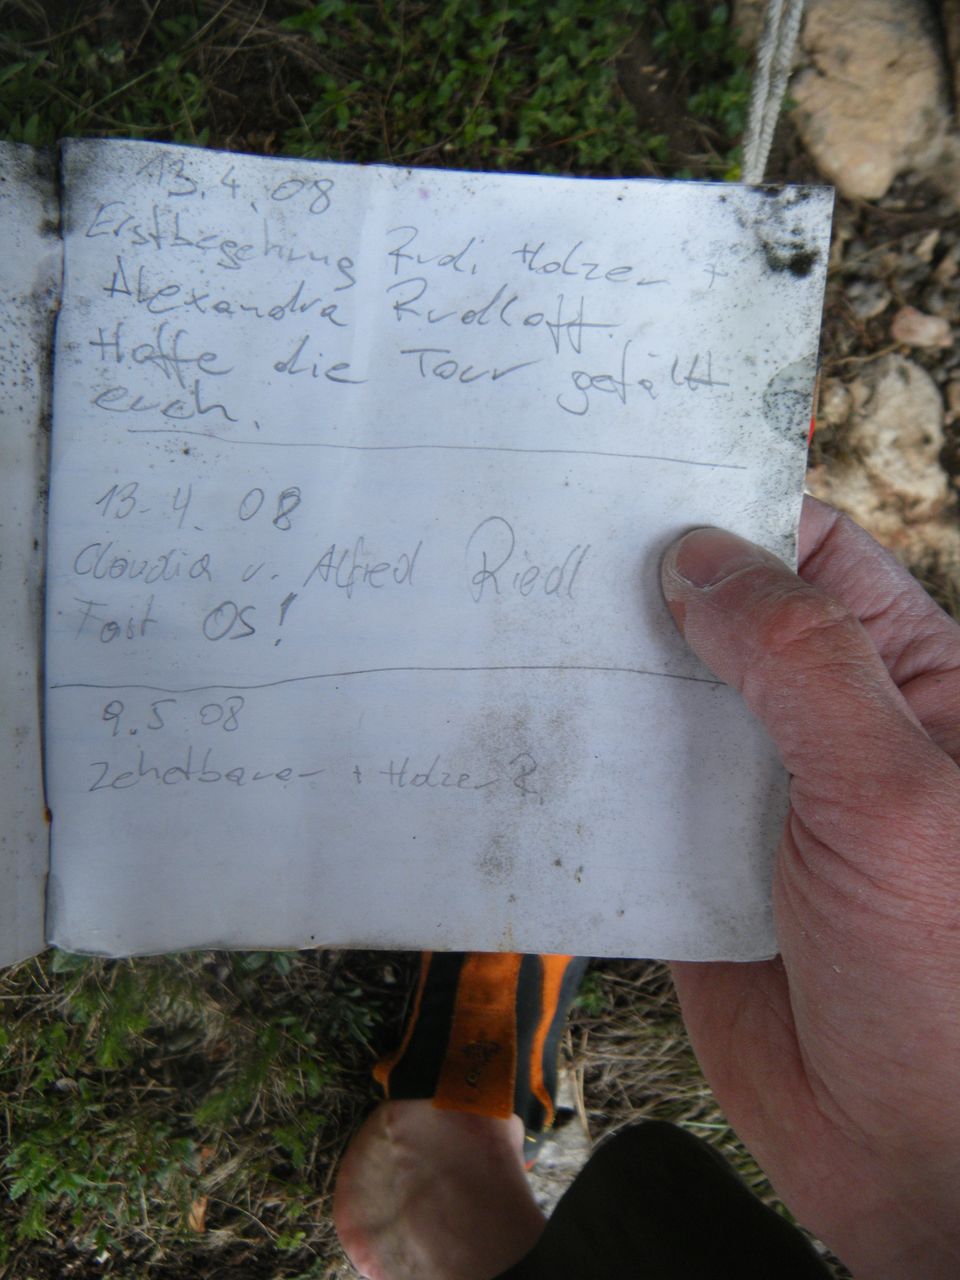 13.4.08
Erstbegehung Rudi Holzer +
Alexandra Rudloff
Hoffe die Tour gefällt
euch.
13.4.08
Claudia u. Alfred Riedl
Fast OS!
9.5.08
Zehetbauer + Holzer R.